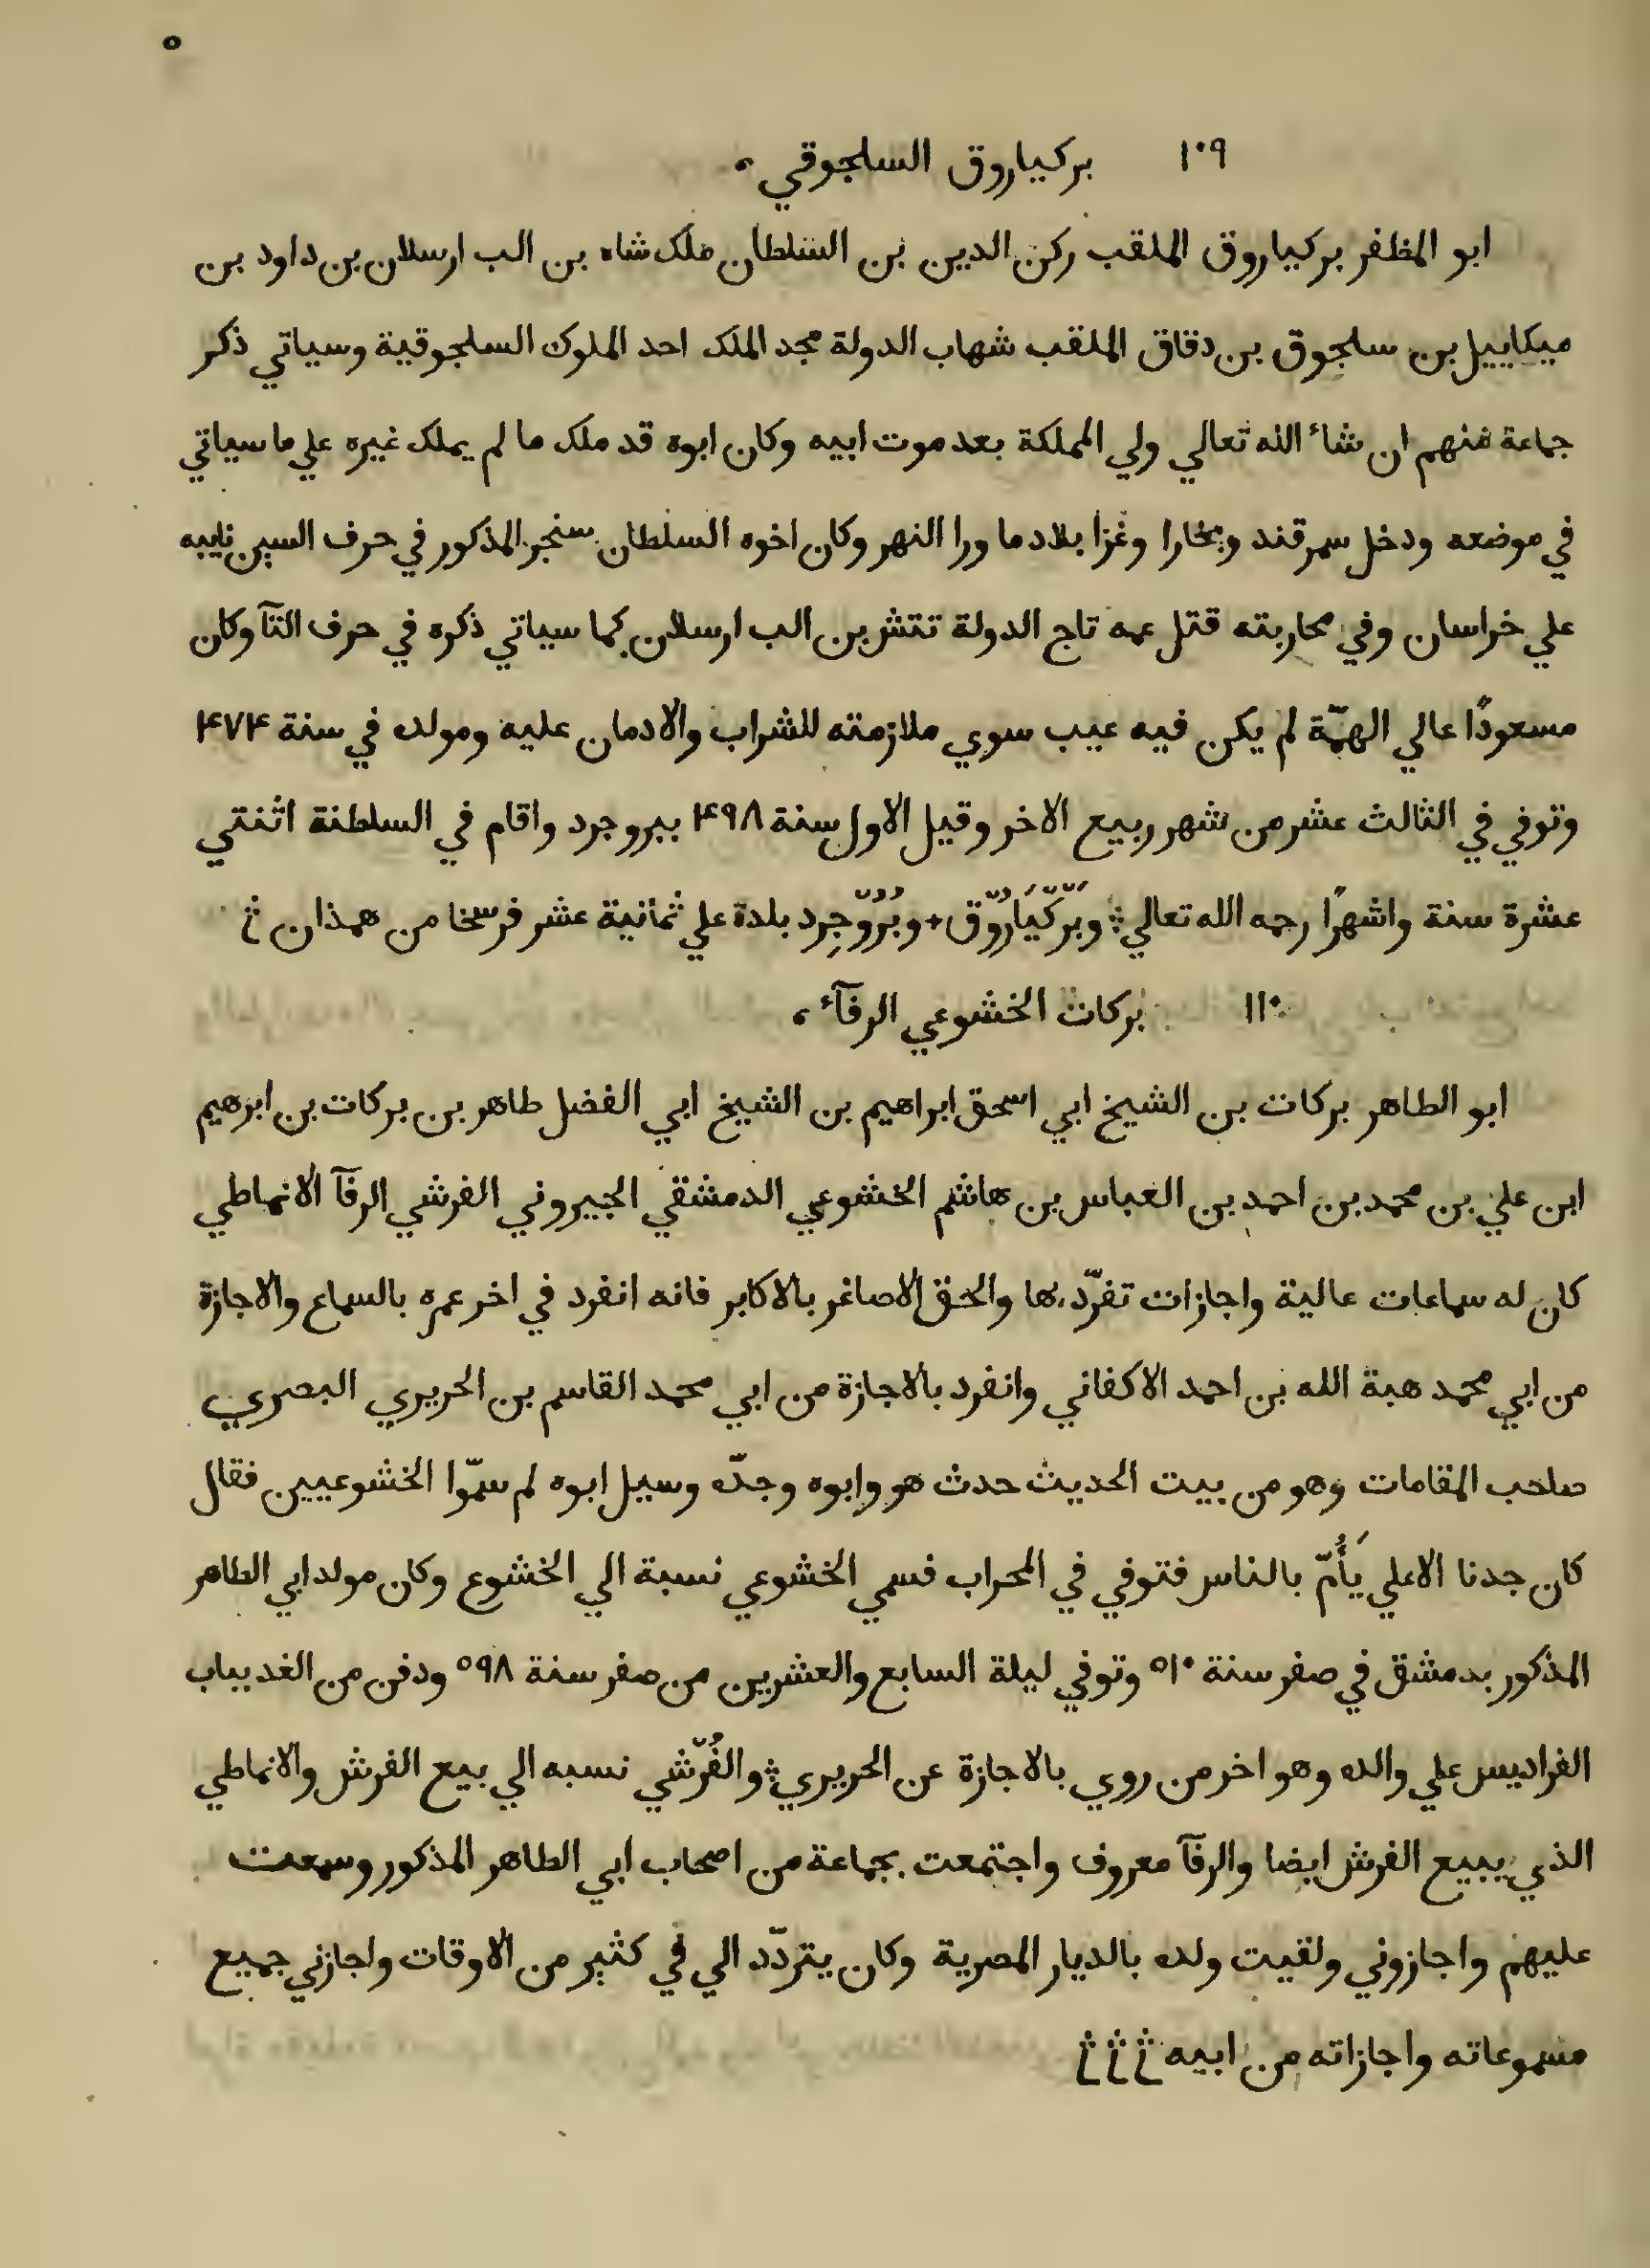 ٥
١٠٩ بركياروق السلجوقي ،
ابو المظفر بركياروق الملقب ركن الدين بن السلطان ملك شاه بن الب ارسلان بن داود بن
ميكاييل بن سلجوق بن دقاق الملقب شهاب الدولة مجد الملك احد الملوك السلجوقية وسياتي ذكر
جماعة منهم ان شاء الله تعالي ولي المملكة بعد موت ابيه وكان ابوه قد ملك ما لم يملك غيره علي ما سياتي
في موضعه ودخل سمرقند وبخارا وغزا بلاد ما ورا النهر وكان اخوه السلطان سنجر المذكور في حرف السين نايبه
علي خراسان وفي محاربته قتل عمه تاج الدولة تتش بن الب ارسلان كما سياتي ذكره في حرف التآ وكان
مسعودًا عالي الهمّة لم يكن فيه عيب سوي ملازمته للشراب والادمان عليه ومولده في سنة ۴٧۴
وتوفي في الثالث عشر من شهر ربيع الاخر وقيل الاول سنة ۴٩٨ ببروجرد واقام في السلطنة اثنتي
عشرة سنة واشهرًا رحمه الله تعالي؛ وبَركّيَارُوّق + وبُرُوّجِرد بلدة علي ثمانية عشر فرسخا من همذان
١١٠ بركات الخشوعي الرفآء ،
ابو الطاهر بركات بن الشيخ ابي اسحق ابراهيم بن الشيخ ابي الفضل طاهر بن بركات بن ابرهيم
ابن علي بن محمد بن احمد بن العباس بن هاشم الخشوعي الدمشقي الجيروني الفرشي الرفآ الانماطي
كان له سماعات عالية واجازات تفرّد بها والحق الاصاغر بالاكابر فانه انفرد في اخر عمره بالسماع والاجازة
من ابي محمد هبة الله بن احمد الاكفاني وانفرد بالاجازة من ابي محمد القاسم بن الحريري البصري
صاحب المقامات وهو من بيت الحديث حدث هو وابوه وجدّه وسيل ابوه لم سمّوا الخشوعيين فقال
كان جدنا الاعلي يَأُمّ بالناس فتوفي في المحراب فسمي الخشوعي نسبة الي الخشوع وكان مولد ابي الطاهر
المذكور بدمشق في صفر سنة ٥١٠ وتوفي ليلة السابع والعشرين من صفر سنة ٥٩٨ ودفن من الغد بباب
الفراديس علي والده وهو اخر من روي بالاجازة عن الحريري؛ والفُرّشي نسبه الي بيع الفرش والانماطي
الذي يبيع الفرش ايضا والرفآ معروف واجتمعت بجماعة من اصحاب ابي الطاهر المذكور وسمعت
عليهم واجازوني ولقيت ولده بالديار المصرية وكان يتردّد الي في كثير من الاوقات واجازني جميع
مسموعاته واجازاته من ابيه